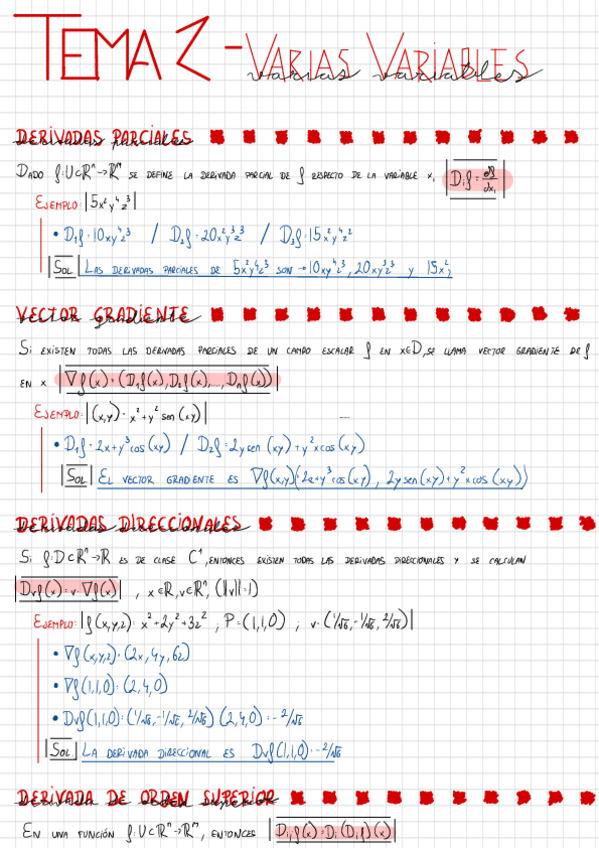 TEMA 2 - VARIAS VARIABLES
varias variables
DERIVADAS PARCIALES
Derivadas parciales
DADO f:U⊂Rⁿ→Rᵐ SE DEFINE LA DERIVADA PARCIAL DE f RESPECTO DE LA VARIABLE xᵢ |Dᵢf = df/dxᵢ|
EJEMPLO: |5x²y⁴z³|
• D₁f=10xy⁴z³ / D₂f=20x²y³z³ / D₃f=15x²y⁴z²
|SOL| LAS DERIVADAS PARCIALES DE 5x²y⁴z³ SON →10xy⁴z³, 20xy³z³ Y 15x²
VECTOR GRADIENTE
vector gradiente
SI EXISTEN TODAS LAS DERIVADAS PARCIALES DE UN CAMPO ESCALAR f EN x∈D, SE LLAMA VECTOR GRADIENTE DE f
EN x |∇f(x)=(D₁f(x),D₂f(x),...,Dₙf(x))|
EJEMPLO: |(x,y)= x²+y² sen(xy)|
• D₁f=2x+y³cos(xy) / D₂f=2ysen(xy)+y²xcos(xy)
|SOL| EL VECTOR GRADIENTE ES ∇f(x,y)(2x+y³cos(xy), 2ysen(xy)+y²xcos(xy))
DERIVADAS DIRECCIONALES
Derivadas direccionales
SI f:D⊂Rⁿ→R ES DE CLASE C¹, ENTONCES EXISTEN TODAS LAS DERIVADAS DIRECCIONALES Y SE CALCULAN
|Dvf(x)=v·∇f(x)| , x∈R,v∈Rⁿ, (||v||=1)
EJEMPLO: |f(x,y,z)= x²+2y²+3z² ; P=(1,1,0) ; v=(1/√6,-1/√6,2/√6)|
• ∇f(x,y,z)=(2x,4y,6z)
• ∇f(1,1,0)=(2,4,0)
• Dvf(1,1,0)=(1/√6,-1/√6,2/√6)(2,4,0)=-2/√6
|SOL| LA DERIVADA DIRECCIONAL ES Dvf(1,1,0)=-2/√6
DERIVADA DE ORDEN SUPERIOR
Derivada de orden superior
EN UNA FUNCIÓN f:U⊂Rⁿ→Rᵐ, ENTONCES |Dᵢⱼf(x)=Dᵢ(Dⱼf)(x)|